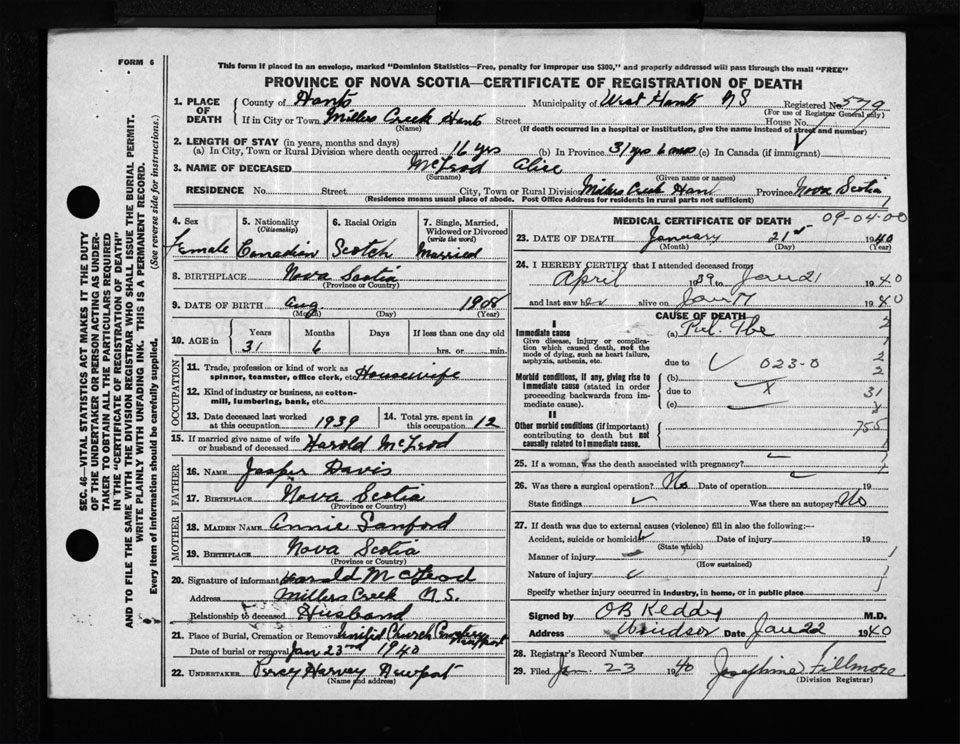 FORM 6
This form if placed in an envelope, marked "Dominion Statistics—Free, penalty for improper use $300," and properly addressed will pass through the mail "FREE"
PROVINCE OF NOVA SCOTIA—CERTIFICATE OF REGISTRATION OF DEATH
1. PLACE OF DEATH County of Hants Municipality of West Hants N S Registered No. 579
(For use of Registrar General only)
If in City or Town Millers Creek Hants Street House No.
(Name) (If death occurred in a hospital or institution, give the name instead of street and number)
2. LENGTH OF STAY (in years, months and days)
(a) In City, Town or Rural Division where death occurred 16 yrs (b) In Province 31 yrs 6 mos (c) In Canada (if immigrant)
3. NAME OF DECEASED McLeod Alice
(Surname) (Given name or names)
RESIDENCE No. Street City, Town or Rural Division Millers Creek Hants Province Nova Scotia
(Residence means usual place of abode. Post Office Address for residents in rural parts not sufficient)
4. Sex 5. Nationality (Citizenship) 6. Racial Origin 7. Single, Married, Widowed or Divorced (write the word)
Female Canadian Scotch Married
8. BIRTHPLACE Nova Scotia
(Province or Country)
9. DATE OF BIRTH Aug 1908
(Month) (Day) (Year)
10. AGE in Years Months Days If less than one day old
31 6 hrs. or min.
OCCUPATION
11. Trade, profession or kind of work as spinner, teamster, office clerk, etc. Housewife
12. Kind of industry or business, as cotton-mill, lumbering, bank, etc.
13. Date deceased last worked at this occupation 1939
14. Total yrs. spent in this occupation 12
15. If married give name of wife or husband of deceased Harold McLeod
FATHER
16. NAME Jasper Davis
17. BIRTHPLACE Nova Scotia
(Province or Country)
MOTHER
18. MAIDEN NAME Annie Sanford
19. BIRTHPLACE Nova Scotia
(Province or Country)
20. Signature of informant Harold McLeod
Address Millers Creek N.S.
Relationship to deceased Husband
21. Place of Burial, Cremation or Removal United Church Cemetery Newport
Date of burial or removal Jan 23rd 1940
22. UNDERTAKER Percy Harvey Newport
(Name and address)
MEDICAL CERTIFICATE OF DEATH
09-04-00
23. DATE OF DEATH January 21st 1940
(Month) (Day) (Year)
24. I HEREBY CERTIFY that I attended deceased from
April 1939 to Jan 21 1940
and last saw her alive on Jan 17 1940
CAUSE OF DEATH
I
Immediate cause (a) Pul. Tbc
Give disease, injury or complication which caused death, not the mode of dying, such as heart failure, asphyxia, asthenia, etc.
due to 023-0
Morbid conditions, if any, giving rise to immediate cause (stated in order proceeding backwards from immediate cause).
(b)
due to X 31
(c)
II
Other morbid conditions (if important) contributing to death but not causally related to immediate cause.
755
25. If a woman, was the death associated with pregnancy?
26. Was there a surgical operation? No Date of operation 19
State findings Was there an autopsy? No
27. If death was due to external causes (violence) fill in also the following:—
Accident, suicide or homicide Date of injury 19
(State which)
Manner of injury
(How sustained)
Nature of injury
Specify whether injury occurred in Industry, in home, or in public place
Signed by O B Keddy M.D.
Address Windsor Date Jan 22 1940
28. Registrar's Record Number
29. Filed Jan. 23 1940 Josephine Fillmore
(Division Registrar)
SEC. 46—VITAL STATISTICS ACT MAKES IT THE DUTY
OF THE UNDERTAKER OR PERSON ACTING AS UNDER-
TAKER TO OBTAIN ALL THE PARTICULARS REQUIRED
IN THE "CERTIFICATE OF REGISTRATION OF DEATH"
AND TO FILE THE SAME WITH THE DIVISION REGISTRAR WHO SHALL ISSUE THE BURIAL PERMIT.
WRITE PLAINLY WITH UNFADING INK. THIS IS A PERMANENT RECORD.
Every item of information should be carefully supplied. (See reverse side for instructions.)